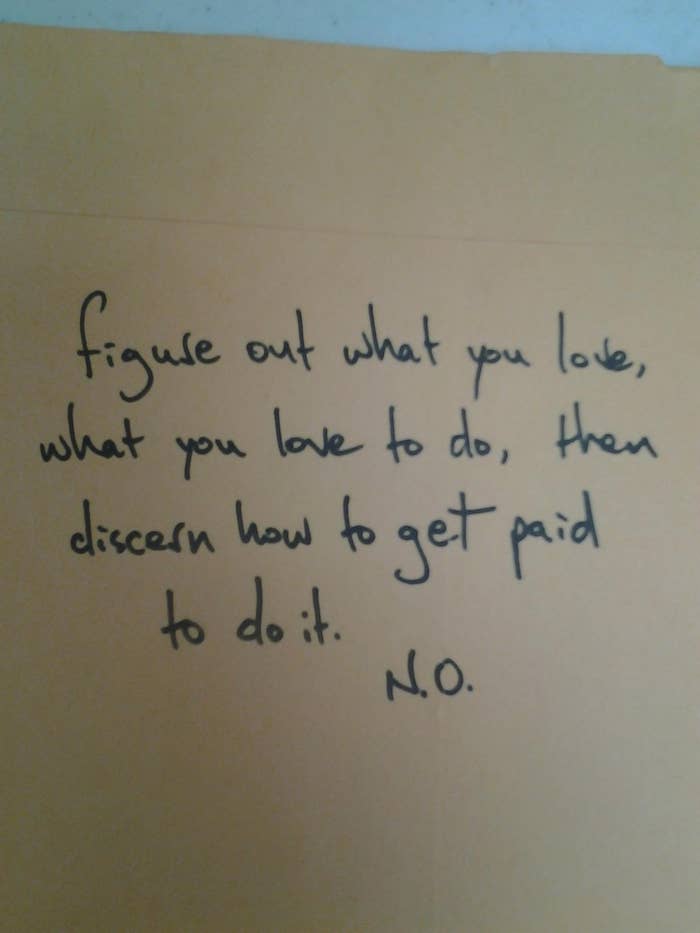 figure out what you love,
what you love to do, then
discern how to get paid
to do it.
N.O.